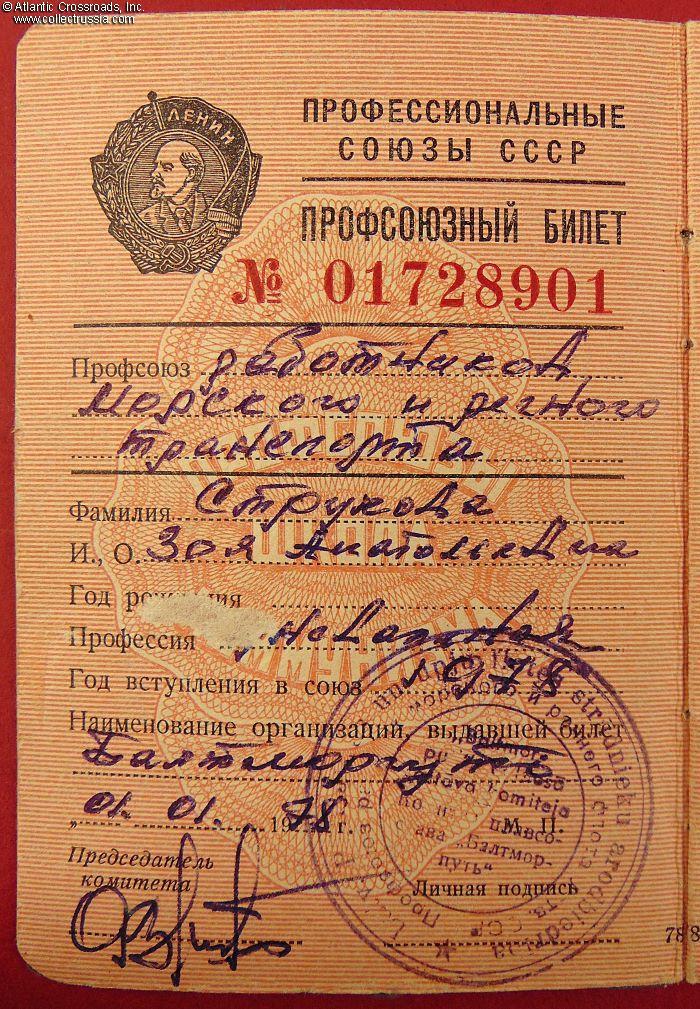 © Atlantic Crossroads, Inc.
www.collectrussia.com
ЛЕНИН
ПРОФЕССИОНАЛЬНЫЕ
СОЮЗЫ СССР
ПРОФСОЮЗНЫЙ БИЛЕТ
№ 01728901
Профсоюз работников
морского и речного
транспорта
Фамилия Струкова
И., О. Зоя Анатольевна
Год рождения
Профессия
Год вступления в союз 1978
Наименование организации, выдавшей билет
Балтморпуть
„01. 01. 1978 г. М. П.
Председатель
комитета
Личная подпись
788